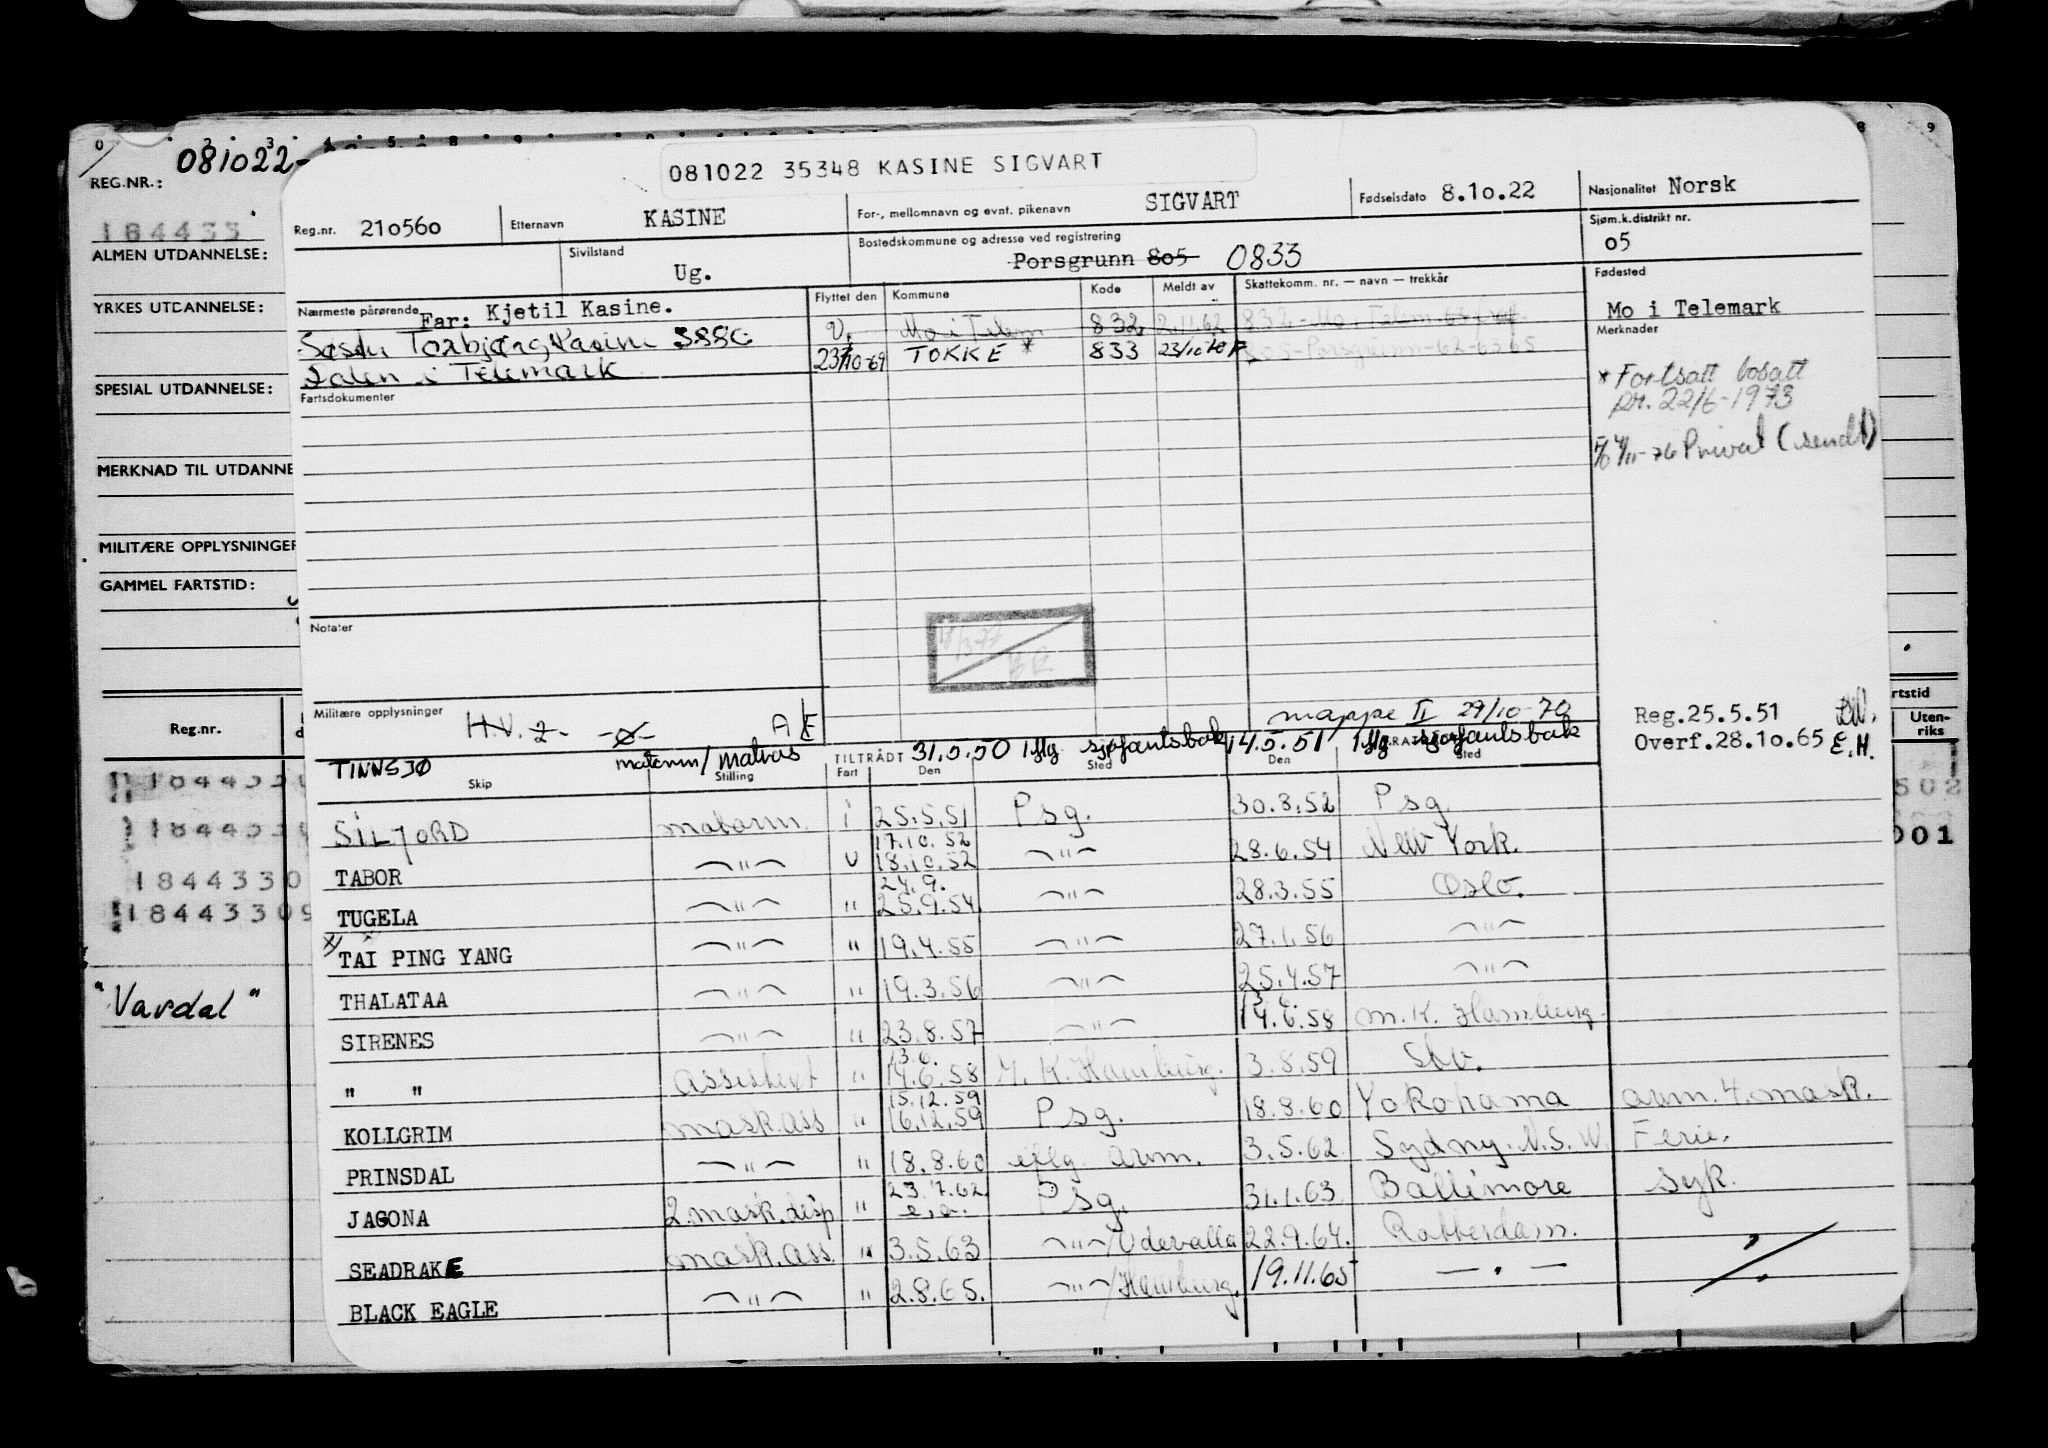 REG.NR.: 081022-
081022 35348 KASINE SIGVART
Reg.nr. 21o56o Etternavn KASINE For-, mellomnavn og evnt. pikenavn SIGVART Fødselsdato 8.1o.22 Nasjonalitet Norsk
184433
Sivilstand Ug. Bostedskommune og adresse ved registrering Porsgrunn 805 0833 Sjøm.k.distrikt nr. o5
ALMEN UTDANNELSE:
YRKES UTDANNELSE:
SPESIAL UTDANNELSE:
MERKNAD TIL UTDANNE
MILITÆRE OPPLYSNINGER
GAMMEL FARTSTID:
Nærmeste pårørende Far: Kjetil Kasine. Flyttet den Kommune Kode Meldt av Skattekomm. nr. — navn — trekkår Fødested
Mo i Telemark
U. Mo i Telem 832 2.11.62 832 - Mo i Telem
Søster Torbjørg Kasine 3880 23/10-69 TOKKE * 833 23/10 70 805-Porsgrunn-
Dalen i Telemark
Merknader
* Fortsatt bosatt
pr. 22/6-1973
4/11-76 Privat (sendt)
Fartsdokumenter
Notater
Militære opplysninger H.V. 2- -Ø- A/E mappe II 29/10-70
Reg.25.5.51
Overf.28.1o.65 E.H.
TINNSJØ matorm/matros TILTRÅDT 31.5.50 iflg sjøfartsbok 14.5.51 iflg sjøfartsbok
Skip Stilling Fart Den Sted Den Sted
SILJORD matorm. i 25.5.51 Psg. 30.8.52 Psg.
17.10.52
TABOR —"— u 18.10.52 —"— 28.6.54 New York.
24.9.
TUGELA —"— " 25.9.54 —"— 28.3.55 Oslo.
x) TAI PING YANG —"— " 19.4.55 —"— 27.1.56 —"—
THALATAA —"— " 19.3.56 —"— 25.4.57 —"—
13.6.
SIRENES —"— " 23.8.57 —"— 14.6.58 m.K. Hamburg.
13.6.
" " assistent " 14.6.58 Hamburg. 3.8.59
15.12.59
KOLLGRIM mask.ass " 16.12.59 Psg. 18.8.60 Yokohama avm. 4. mask.
PRINSDAL —"— " 18.8.60 eflg. avm. 3.5.62 Sydny. N.S.W Ferie.
23.7.62
JAGONA 2.mask.disp " e.a. Psg. 31.1.63 Baltimore syk.
SEADRAKE mask.ass. " 3.5.63 —"—/Udevalla 22.9.64. Rotterdam. "
BLACK EAGLE —"— " 2.8.65. —"—/Hamburg. 19.11.65 —"—
Reg.nr.
1844330
1844330
1844330
18443309
"Vardal"
rtstid
Uten-
riks
502
001